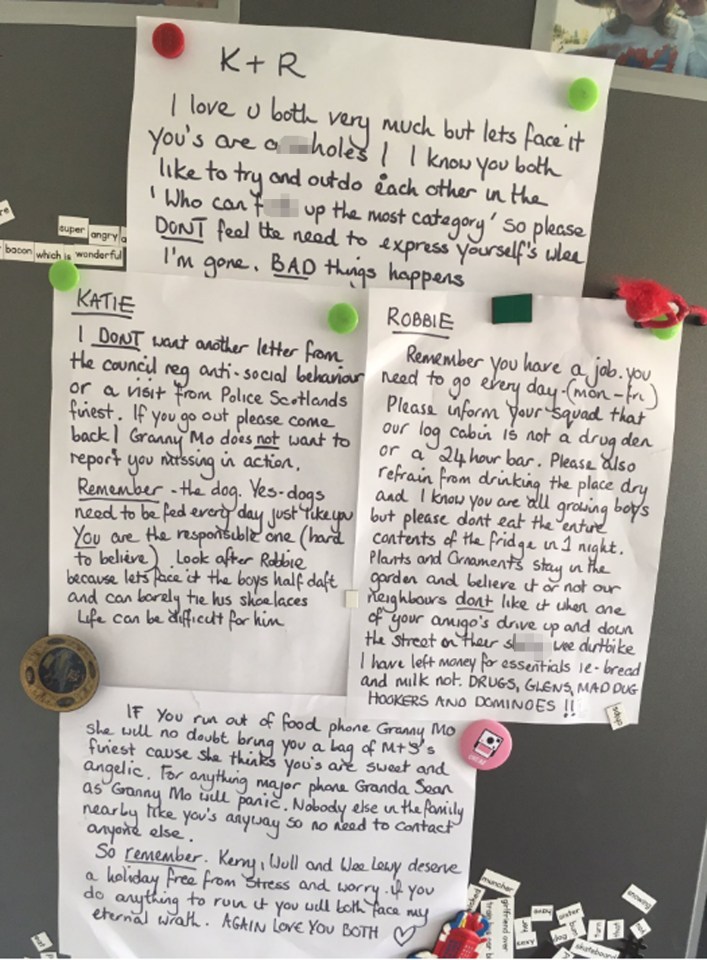 K + R
I love u both very much but lets face it
you's are a holes! I know you both
like to try and outdo each other in the
'Who can f up the most category' so please
DONT feel the need to express yourself's when
I'm gone. BAD things happens
super angry a
bacon which is wonderful
KATIE
I DONT want another letter from
the council reg anti-social behaviour
or a visit from Police Scotlands
finest. If you go out please come
back! Granny Mo does not want to
report you missing in action.
Remember - the dog. Yes - dogs
need to be fed every day just like you
You are the responsible one (hard
to believe). Look after Robbie
because lets face it the boys half daft
and can barely tie his shoelaces
Life can be difficult for him
ROBBIE
Remember you have a job. you
need to go every day - (mon - fri)
Please inform your squad that
our log cabin is not a drug den
or a 24 hour bar. Please also
refrain from drinking the place dry
and I know you are all growing boys
but please dont eat the entire
contents of the fridge in 1 night.
Plants and Ornaments stay in the
garden and believe it or not our
neighbours dont like it when one
of your amigo's drive up and down
the street on their s wee dirtbike
I have left money for essentials ie - bread
and milk not. DRUGS, GLENS, MAD DUG
HOOKERS AND DOMINOES !!
IF you run out of food phone Granny Mo
she will no doubt bring you a bag of M+S's
finest cause she thinks you's are sweet and
angelic. For anything major phone Granda Sean
as Granny Mo will panic. Nobody else in the family
nearby like you's anyway so no need to contact
anyone else.
So remember. Kerry, Wull and Wee Lewy deserve
a holiday free from stress and worry. if you
do anything to ruin it you will both face my
eternal wrath. AGAIN LOVE YOU BOTH
muncher
girlfriend over
snowing
sister
dog
sexy
skateboard